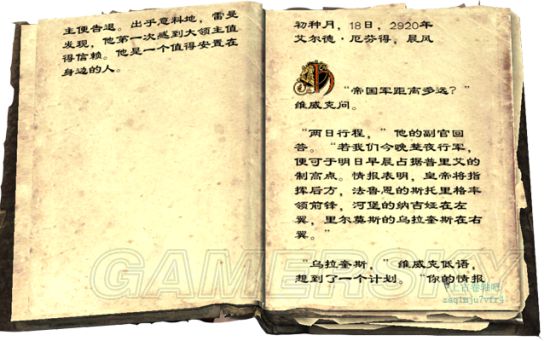 主便告退。出乎意料地，雷曼
发现，他第一次感到大领主值
得信赖。他是一个值得安置在
身边的人。
初种月，18日，2920年
艾尔德·厄芬得，晨风
“帝国军距离多远？”
维威克问。
“两日行程，”他的副官回
答。“若我们今晚整夜行军，
便可于明日早晨占据普里艾的
制高点。情报表明，皇帝将指
挥后方，法鲁恩的斯托里格率
领前锋，河堡的纳吉娅在左
翼，里尔莫斯的乌拉奎斯在右
翼。”
“乌拉奎斯，”维威克低语，
想到了一个计划。“你的情报
GAMERSKY
@上古卷轴吧